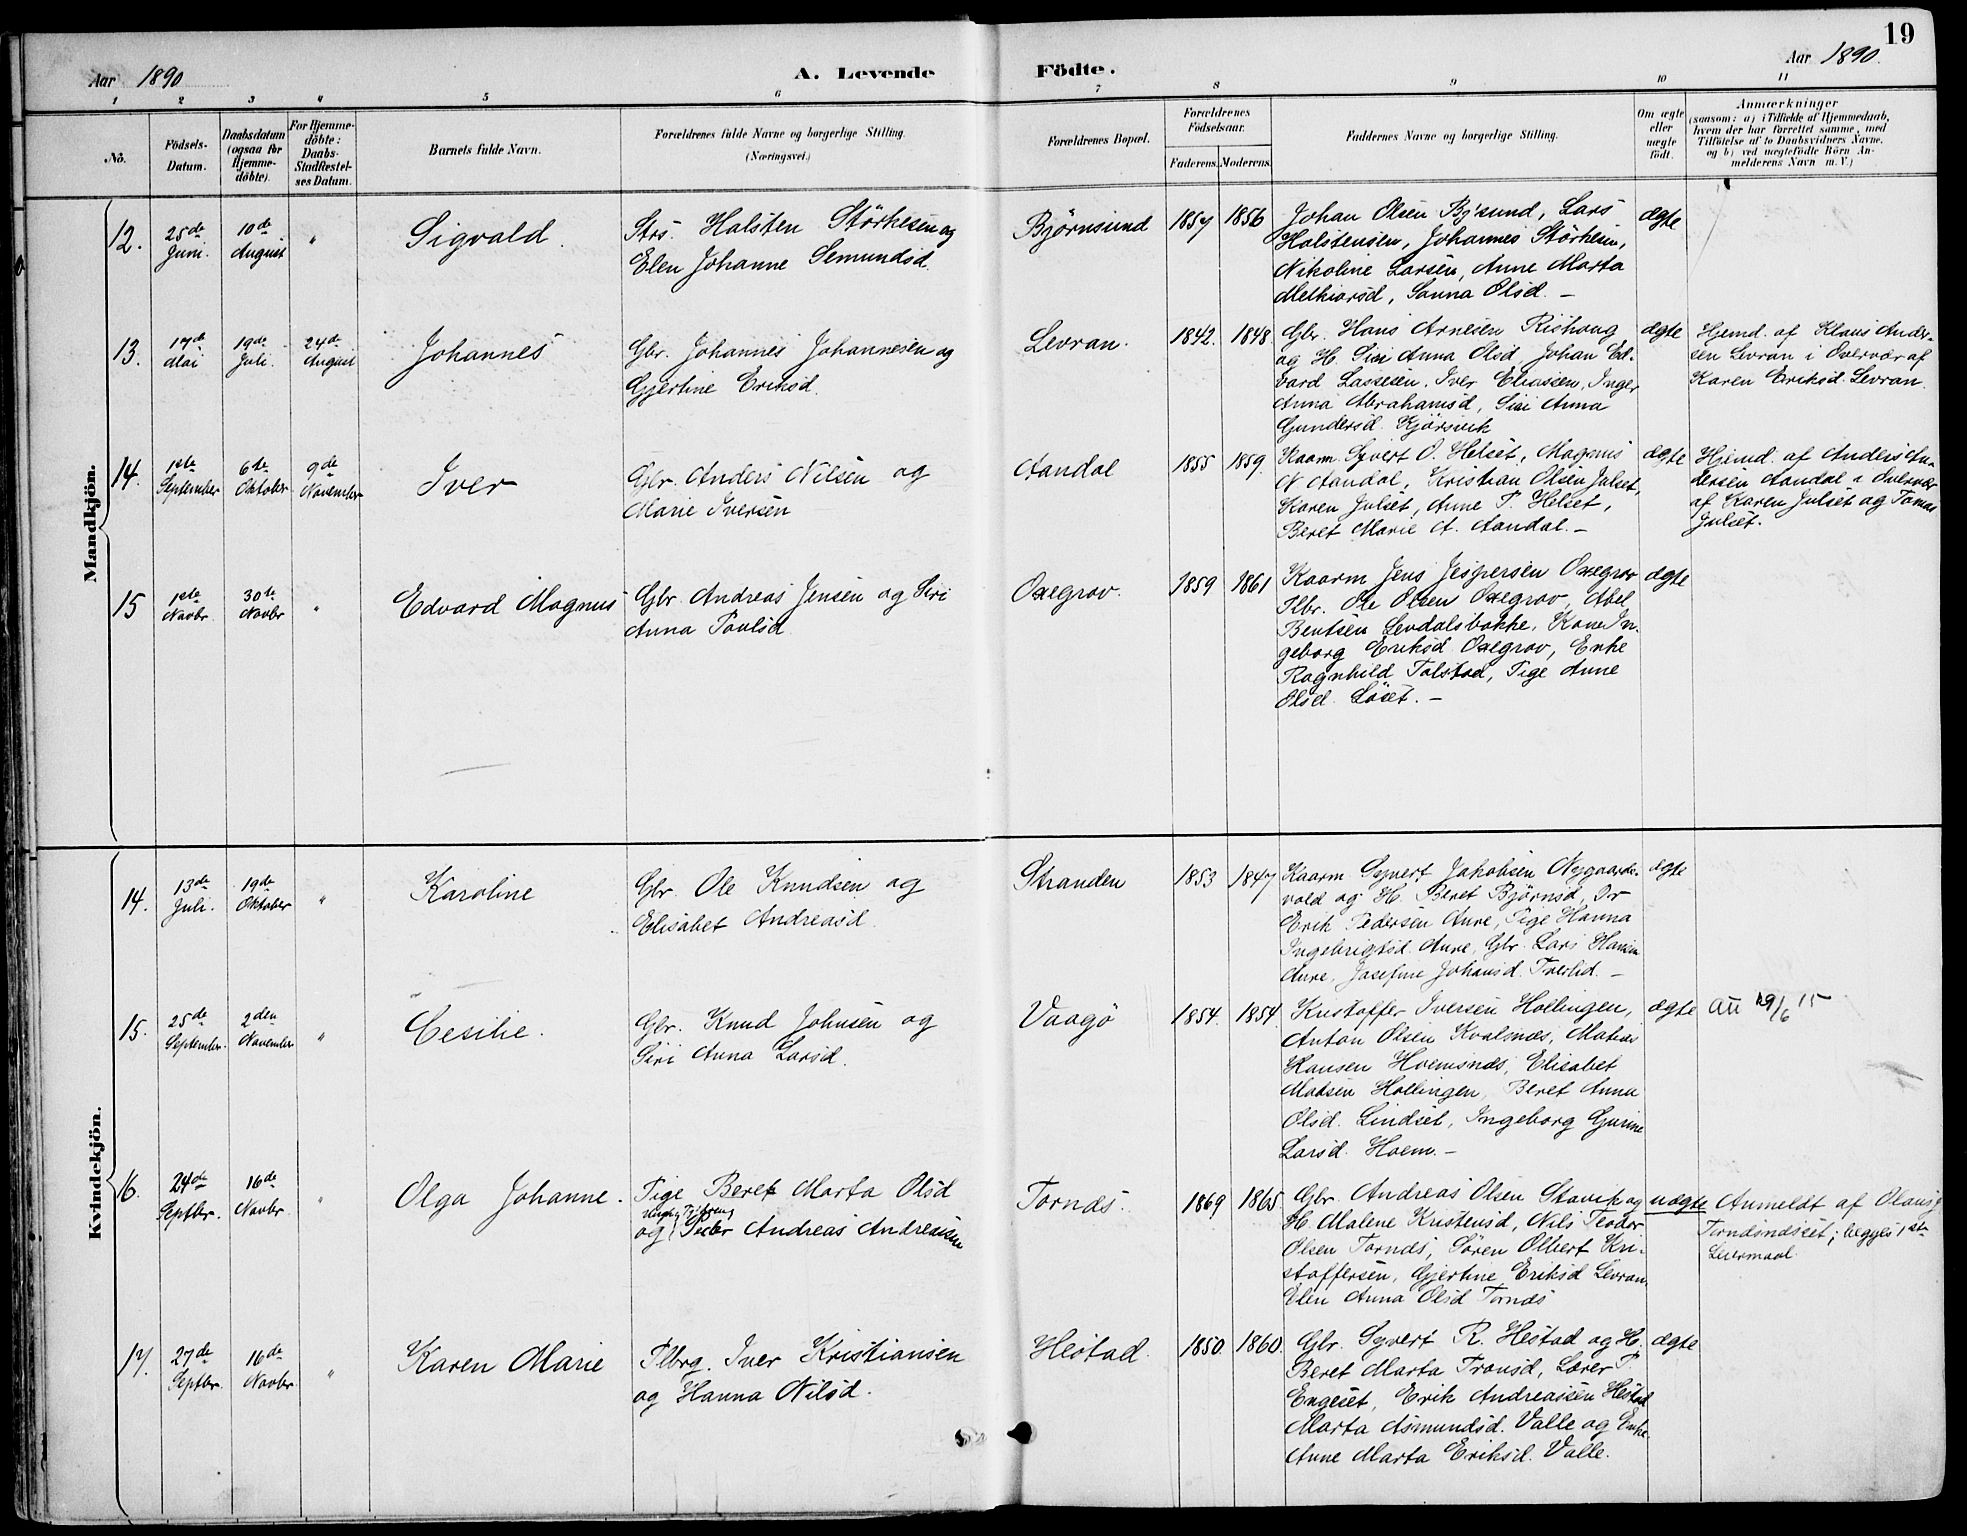 19
Aar 1890
A. Levende
Födte.
Aar 1890.
1 2 3 4 5 6 7 8 9 10 11
No.
Födsels-
Datum.
Daabsdatum
(ogsaa for
Hjemme-
döbte).
For Hjemme-
döbte:
Daabs-
Stadfæstel-
ses Datum.
Barnets fulde Navn.
Forældrenes fulde Navne og borgerlige Stilling.
(Næringsvei.)
Forældrenes Bopæl.
Forældrenes
Födselsaar.
Faderens. Moderens.
Faddernes Navne og borgerlige Stilling.
Om ægte
eller
uægte
födt.
Anmærkninger
(saasom: a) i Tilfælde af Hjemmedaab,
hvem der har forrettet samme, med
Tilföielse af to Daabsvidners Navne,
og b) ved uægtefödte Börn An-
melderens Navn m. V.)
Mandkjön.
12.
25de
Juni.
10de
August
"
Sigvald.
Strs. Halsten Störkesen og
Elen Johanne Semundsd.
Bjørnsund
1857
1856
Johan Olsen Bj'sund, Lars
Halstensen, Johannes Störkesen,
Nikoline Larsen, Anne Marta
Melkiorsd, Sanna Olsd. –
ægte
13.
17de
Mai
19de
Juli.
24de
August
Johannes
Gbr. Johannes Johannesen og
Gjertine Eriksd.
Levran.
1842.
1848.
Gbr. Hans Arnesen Rishoug
og H. Siri Anna Olsd, Johan Ed-
vard Lassesen, Iver Eliassen, Inger
Anna Abrahamsd, Siri Anna
Gundersd. Kjørsvik
ægte
Hjemd. af Klaus Ander-
sen Levran i Overvær af
Karen Eriksd. Levran.
14.
1ste
September
6te
Oktober
9de
November
Iver
Gbr. Anders Nilsen og
Marie Iversen
Aandal
1855
1859.
Kaarm. Syvert O. Helset, Magnus
N Aandal, Kristian Olsen Julset,
Karen Julset, Anne P. Helset,
Beret Marie A. Aandal. –
ægte
Hjemd. af Anders An-
dersen Aandal i Overvær
af Karen Julset og Tomas
Julset.
15
1ste
Novbr.
30te
Novbr
"
Edvard Magnus
Gbr. Andreas Jensen og Siri
Anna Paulsd.
Oxegrov.
1859
1861
Kaarm Jens Jespersen Oxegrov
Gbr. Ole Olsen Oxegrov, Abel
Bentsen Levdalsbakke, Kone In-
geborg Eriksd. Oxegrov, Enke
Ragnhild Talstad, Pige Anne
Olsd. Löset. –
ægte
Kvindekjön.
14.
13de
Juli.
19de
Oktober
"
Karoline
Gbr. Ole Knudsen og
Elisabet Andreasd.
Stranden
1853
1847
Kaarm. Syvert Jakobsen Nygaards-
vold og H. Beret Bjørnsd,
Erik Pedersen Aure, Pige Hanna
Ingebrigtsd. Aure, Gbr. Lars Hansen
Aure, Josefine Johansd. Tverlid. –
ægte
15.
25de
September.
2den
November
"
Cesilie.
Gbr. Knud Johnsen og
Siri Anna Larsd.
Vaagö
1854.
1854.
Kristoffer Iversen Hollingen,
Anton Olsen Kvalsnæs, Matias
Hansen Hoemsnæs, Elisabet
Madsen Hollingen, Beret Anna
Olsd. Lindset, Ingeborg Gurine
Larsd. Hoem. –
ægte
Att 29/6 15
16.
24de
Septbr.
16de
Novbr
"
Olga Johanne.
Pige Beret Marta Olsd
og Peder Andreas Andreasen
Tornæs.
1869
1865
Gbr. Andreas Olsen Stavik og
H. Malene Kristensd, Nils Teodor
Olsen Tornæs, Sören Olbert Kri-
stoffersen, Gjertine Eriksd Levran
Elen Anna Olsd Tornæs
uægte
Anmeldt af Olaus J.
Tornæsnæset; begges 1ste
Leiermaal.
17.
27de
Septbr.
16de
Novbr.
"
Karen Marie
Plbrg. Iver Kristiansen
og Hanna Nilsd.
Hestad.
1850.
1860.
Gbr. Syvert R. Hestad og H.
Beret Marta Tronsd, Lærer P.
Engeset, Erik Andreassen Hestad
Marta Asmundsd. Valle og Enke
Anne Marta Eriksd. Valle.
ægte